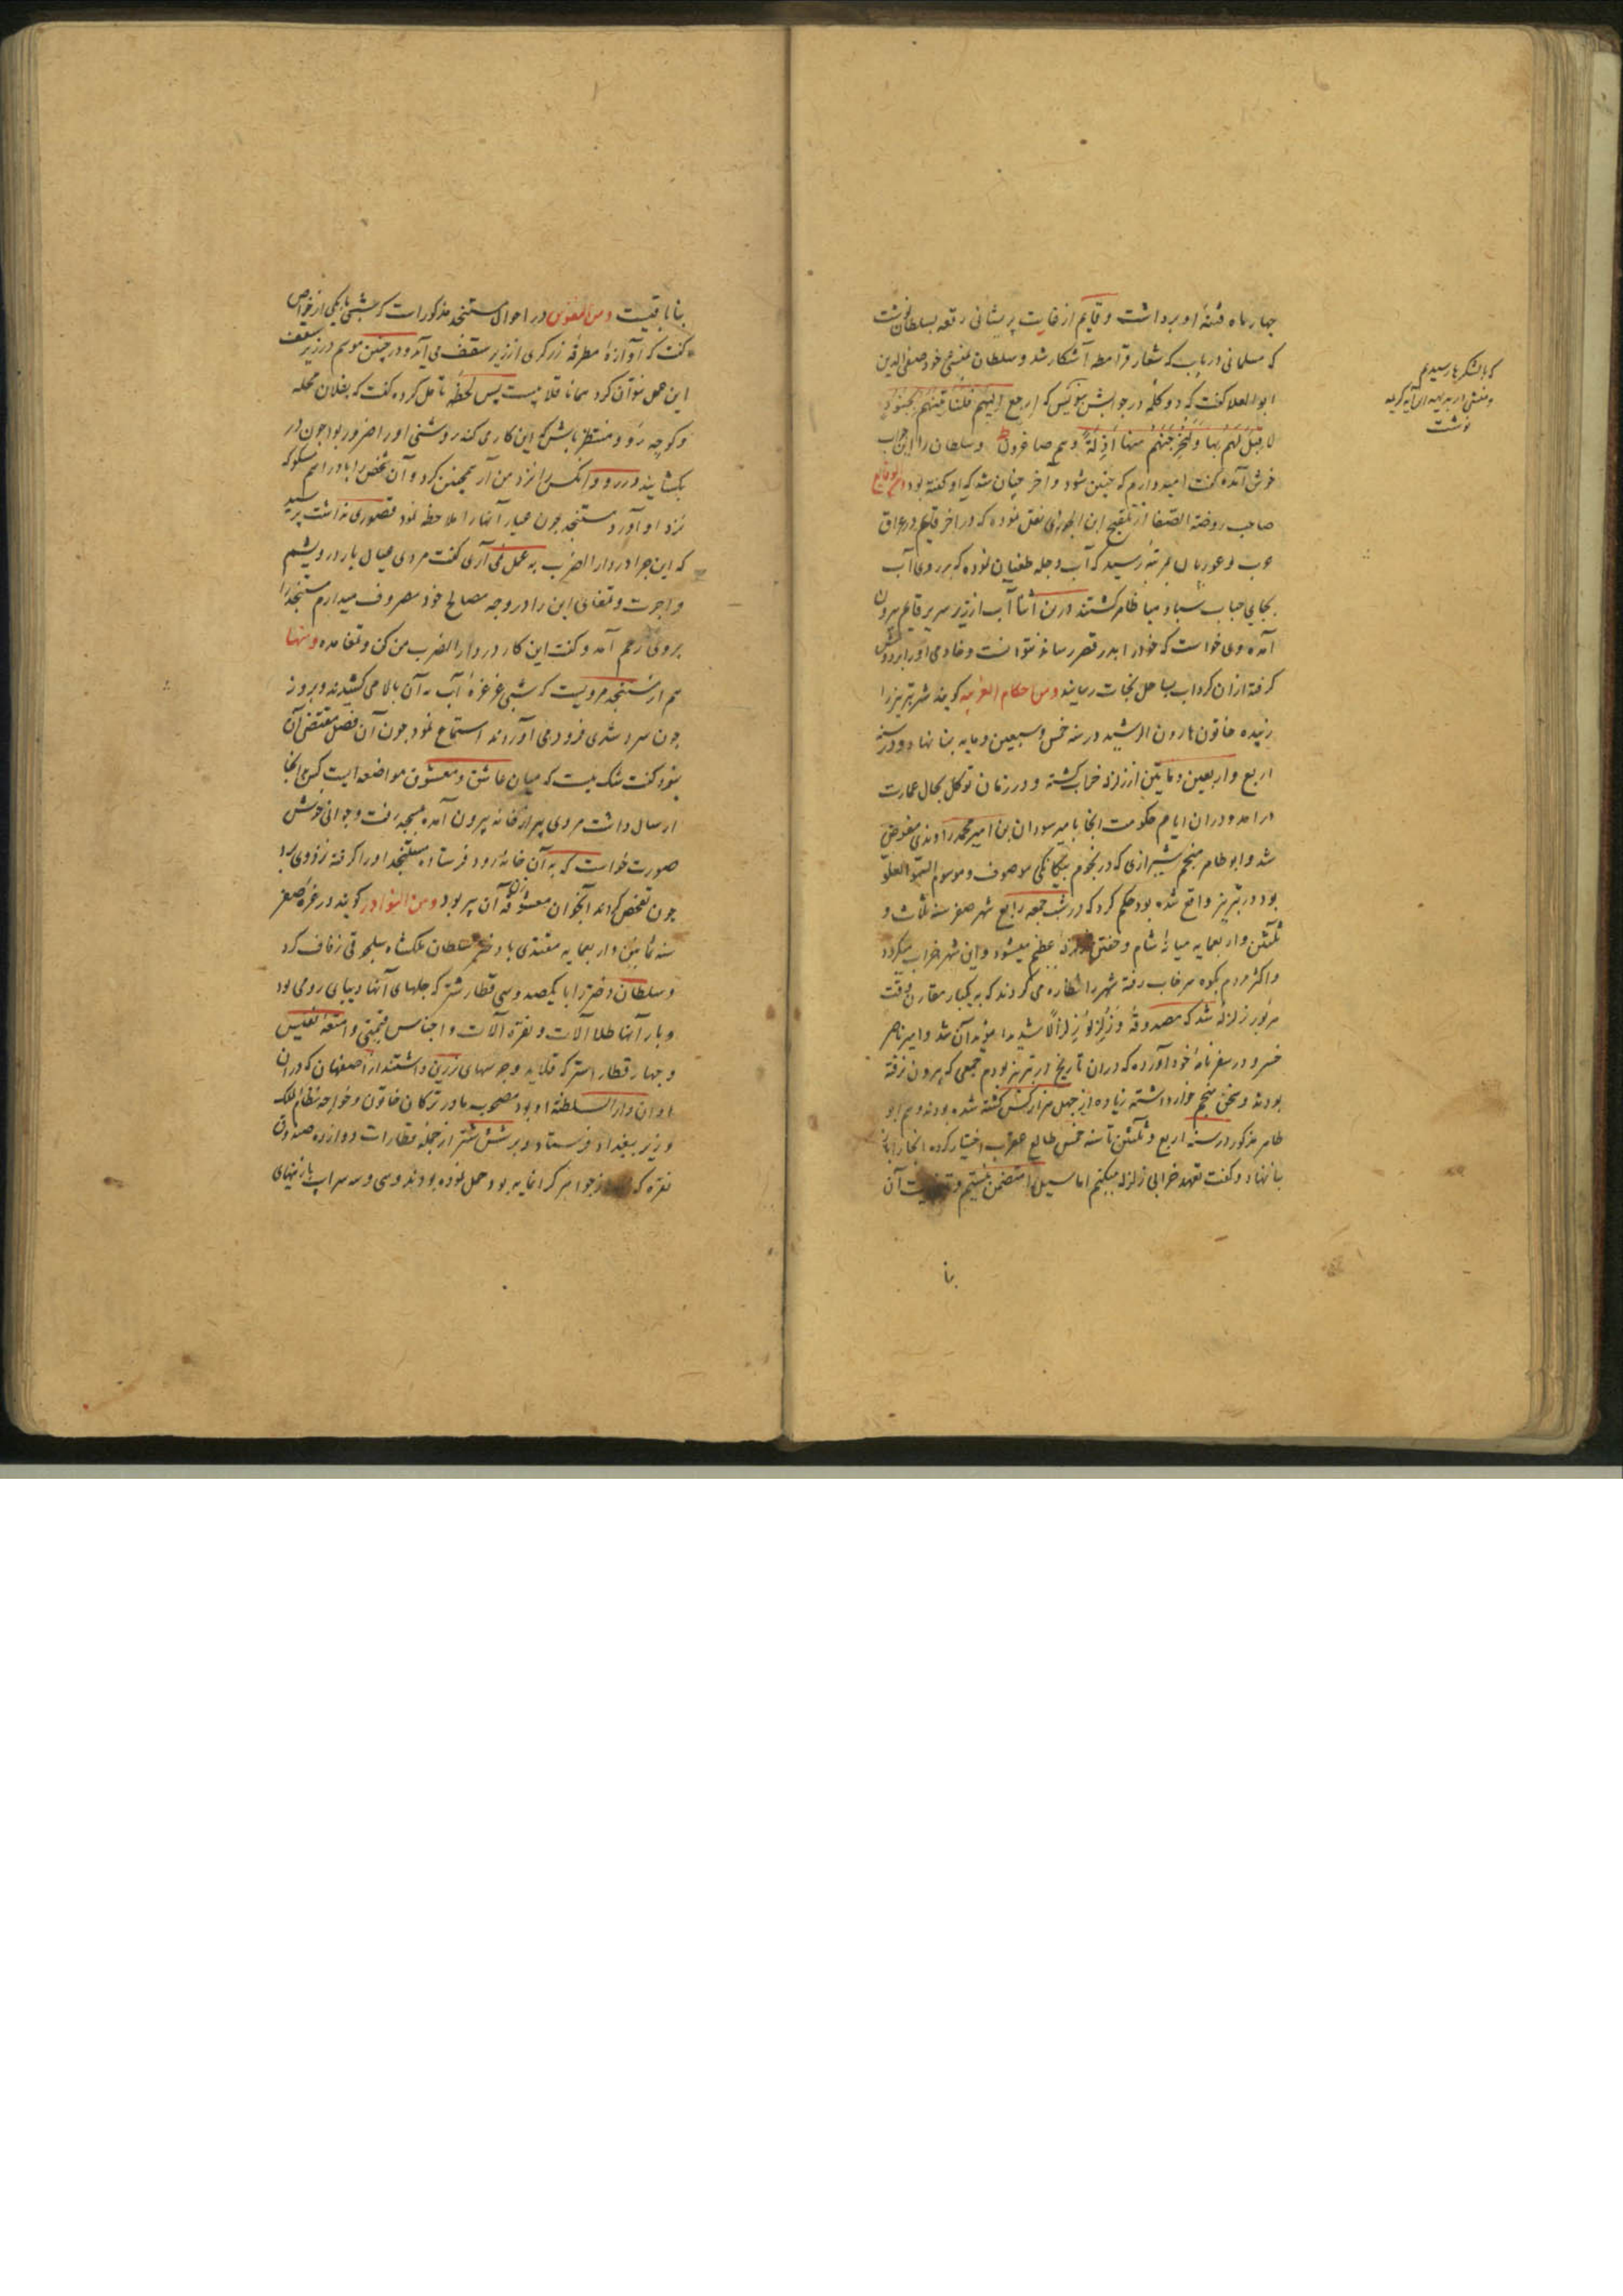 چهار ماه فتنهٔ او برداشت و قایم از غایت پریشانی رقعه بسلطان نوشت
که مسلمانی دریاب که شعار قرامطه آشکار شد و سلطان بمنشی خود صفی الدین
ابوالعلا گفت که دو کلمه در جوابش بنویس که ارجع الیهم فلنأتینهم بجنود
لا قبل لهم بها ولنخرجنهم منها اذلة وهم صاغرون و سلطان را این جواب
خوش آمده گفت امیدوارم که چنین شود و آخر چنان شد که او گفته بود
صاحب روضة الصفا از تلقیح ابن الجوزی نقل نموده که در آخر قایم در عراق
عرب رسید که آب دجله طغیان نموده که بر روی آب
بجای حباب ظاهر گشتند درین اثنا آب از زیر سریر قایم بیرون
آمده وی خواست که خود را بدر قصر رساند نتوانست و خادمی او را بر دوش
گرفته ازان گرداب بساحل نجات رسانید ومن احکام الغریبه گویند شهر تبریز را
زبیده خاتون هارون الرشید در سنه خمس و سبعین و مایه بنا نهاد و در سنه
اربع و اربعین و مأتین از زلزله خراب گشته و در زمان متوکل بحال عمارت
درآمد و دران ایام حکومت آنجا بامیر سودان بن امیر محمد راوندی مفوض
شد و ابو طاهر منجم شیرازی که در نجوم بیگانگی موصوف و موسوم
بود در تبریز واقع شده بود حکم کرد که در شب جمعه رابع شهر صفر سنه ثلث و
ثلثین و اربعمایه میانهٔ شام و خفتن زلزلهٔ عظیم میشود و این شهر خراب میگردد
و اکثر مردم بکوه سرخاب رفته شهر را نظاره می کردند که به یکبار مقارن وقت
مزبور زلزلهٔ شد که مصدوقهٔ وزلزلوا زلزالا شدیدا مؤید آن شد و امیر ناصر
خسرو در سفرنامهٔ خود آورده که دران تاریخ در تبریز بودم جمعی که بیرون نرفته
بودند و سخن منجم خوار داشته زیاده از چهل هزار کس کشته شده بودند و هم ابو
طاهر مذکور در سنه اربع و ثلثین تا سنه خمس طالع عقرب اختیار کرده آنجا را باز
بنا نهاد و گفت تعهد خرابی زلزله میکنم اما سیل را متضمن نیستم و آن
بنا
که با لشکرها رسیدیم
و منشی او بدیهه این آیه کریمه
نوشت
بنا باقیست ومن در احوال مستنجد مذکور است که شبی با یکی از خواص
گفت که آوازهٔ مطرقهٔ زرگری از زیر سقف می آید و در چنین موسم در زیر سقف
این عمل نتوان کرد همانا قلابیست پس لحظه تامل کرده گفت که بفلان محله
و کوچه رو و منتظر باش که این کار می کند روشنی او را ضرور بود چون در
بگشاید در رو و آنکس را نزد من آر همچنین کرد و آن شخص را با دراهم مسکوکه
نزد او آورد مستنجد چون عیار آنها را ملاحظه نمود قصوری نداشت پرسید
که این چرا در دار الضرب به عمل نمی آری گفت مردی عیال بار درویشم
و اجرت و تمغای این را در وجه مصالح خود مصروف میدارم مستنجد را
بر وی رحم آمد و گفت این کار در دار الضرب من کن و تمغا مده ومنها
هم از مستنجد مرویست که شبی غرغرهٔ آب به آن بالا می کشیدند و بروز
چون سرد شدی فرود می آوردند استماع نمود چون آن فصل مقتضی آن
نبود گفت شک نیست که میان عاشق و معشوق مواضعه ایست کس آنجا
ارسال داشت مردی پیر از خانه بیرون آمده بمسجد رفت و جوانی خوش
صورت خواست که به آن خانه رود فرستاده مستنجد او را گرفته نزد وی برد
چون تفحص کردند آنجوان معشوقه زن آن پیر بود ومن النوادر گویند در غره صفر
سنه ثمانین و اربعمایه مقتدی با دختر سلطان ملکشاه سلجوقی زفاف کرد
و سلطان دختر را با یکصد و سی قطار شتر که جلهای آنها دیبای رومی بود
و بار آنها طلا آلات و نقره آلات و اجناس قیمتی و امتعه نفیس
و چهار قطار استر که قلاید و جرسهای زرین داشتند از اصفهان که دران
اوان دار السلطنهٔ او بود مصحوب مادر ترکان خاتون و خواجه نظام الملک
وزیر ببغداد فرستاد و بر شش شتر از جمله قطارات دوازده صندوق
نقره که از جواهر گرانمایه بود حمل نموده بودند و سی و سه سر اسپ با زینهای